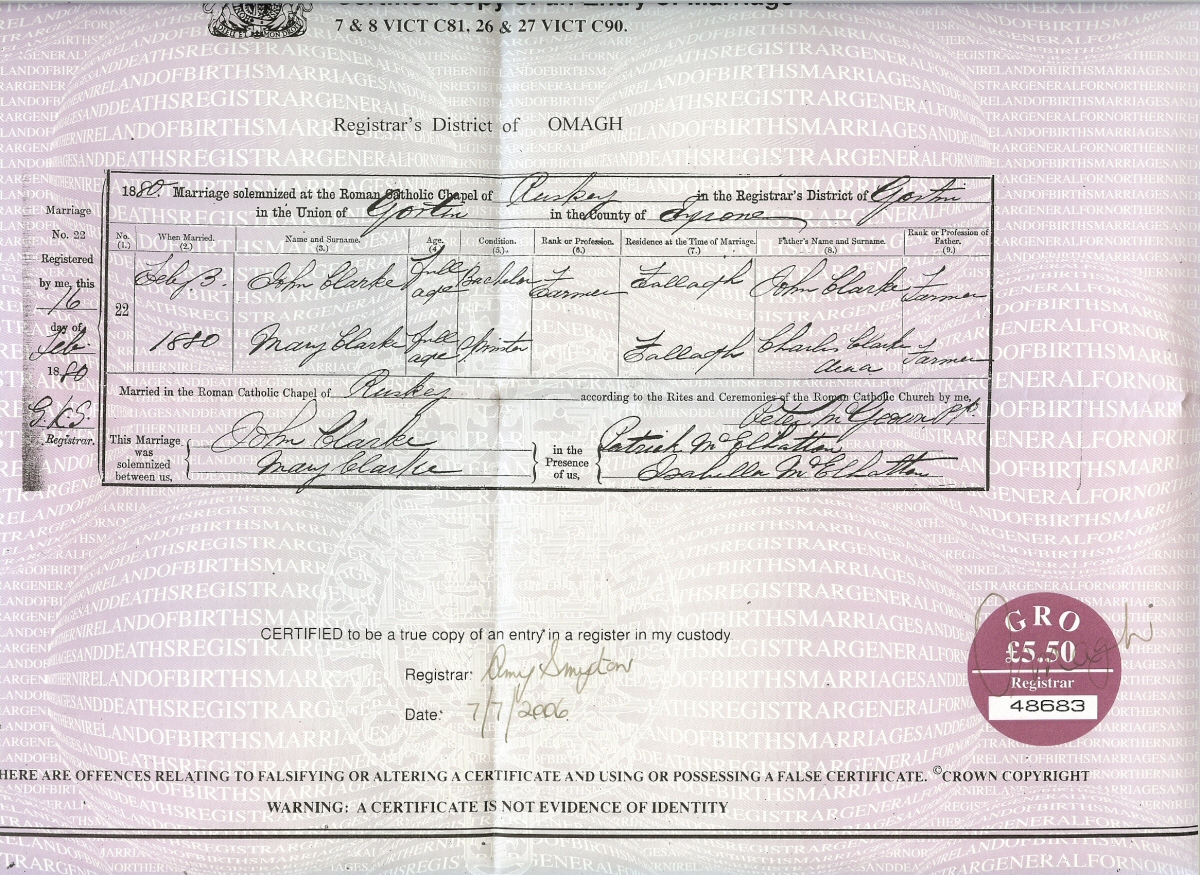 Certified copy of an Entry of Marriage
DIEU ET MON DROIT
7 & 8 VICT C81, 26 & 27 VICT C90.
Registrar's District of OMAGH
1880. Marriage solemnized at the Roman Catholic Chapel of Ruskey in the Registrar's District of Gortin
in the Union of Gortin in the County of Tyrone
Marriage
No. 22
Registered
by me, this
16
day of
Feb.
1880
G.K.S.
Registrar.
No. When Married. Name and Surname. Age. Condition. Rank or Profession. Residence at the Time of Marriage. Father's Name and Surname. Rank or Profession of Father.
(1.) (2.) (3.) (4.) (5.) (6.) (7.) (8.) (9.)
22 Feby 3. John Clarke full age Bachelor Farmer Fallagh John Clarke Farmer
1880 Mary Clarke full age Spinster Fallagh Charles Clarke Farmer
Married in the Roman Catholic Chapel of Ruskey according to the Rites and Ceremonies of the Roman Catholic Church by me,
Peter McGeown PP.
This Marriage was solemnized between us, John Clarke
Mary Clarke
in the Presence of us, Patrick McElhatton
Isabella McElhatton
CERTIFIED to be a true copy of an entry in a register in my custody
Registrar: Amy
Date: 7/7/2006.
GRO
£5.50
Registrar
48683
Omagh
HERE ARE OFFENCES RELATING TO FALSIFYING OR ALTERING A CERTIFICATE AND USING OR POSSESSING A FALSE CERTIFICATE. ©CROWN COPYRIGHT
WARNING: A CERTIFICATE IS NOT EVIDENCE OF IDENTITY